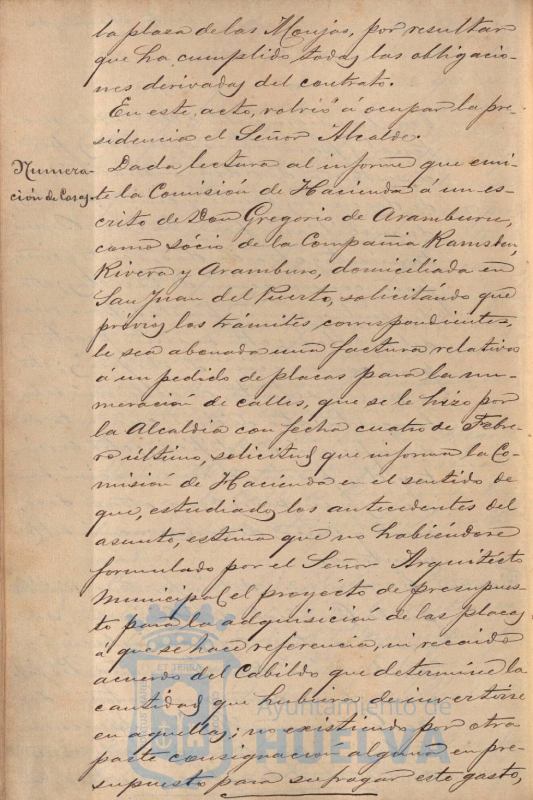 la plaza de las Monjas, por resultar
que ha cumplido todas las obligacio-
nes derivadas del contrato.
En este acto, volvió á ocupar la pre-
sidencia el Señor Alcalde.
Numera-
ción de Casas.
Dada lectura al informe que emi-
te la Comisión de Hacienda á un es-
crito de Don Gregorio de Aramburu,
como sócio de la Compañia Ramsden,
Rivera y Aramburo, domiciliada en
San Juan del Puerto, solicitándo que
previos los trámites correspondientes,
le sea abonada una factura relativa
á un pedido de placas para la nu-
meración de calles, que se le hizo por
la Alcaldía con fecha cuatro de Febre-
ro último, solicitud que informa la Co-
misión de Hacienda en el sentido de
que, estudiados los antecedentes del
asunto, estima que no habiéndose
formulado por el Señor Arquitécto
Municipal el proyécto de presupues-
to para la adquisición de las placas
á que se hace referencia, ni recaido
acuerdo del Cabildo que determine la
cantidad que hubiera de invertirse
en aquellas; no existiendo por otra
parte consignación alguna en pre-
supuesto para sufragar este gasto,
ET TERRA
Ayuntamiento de
HUELVA